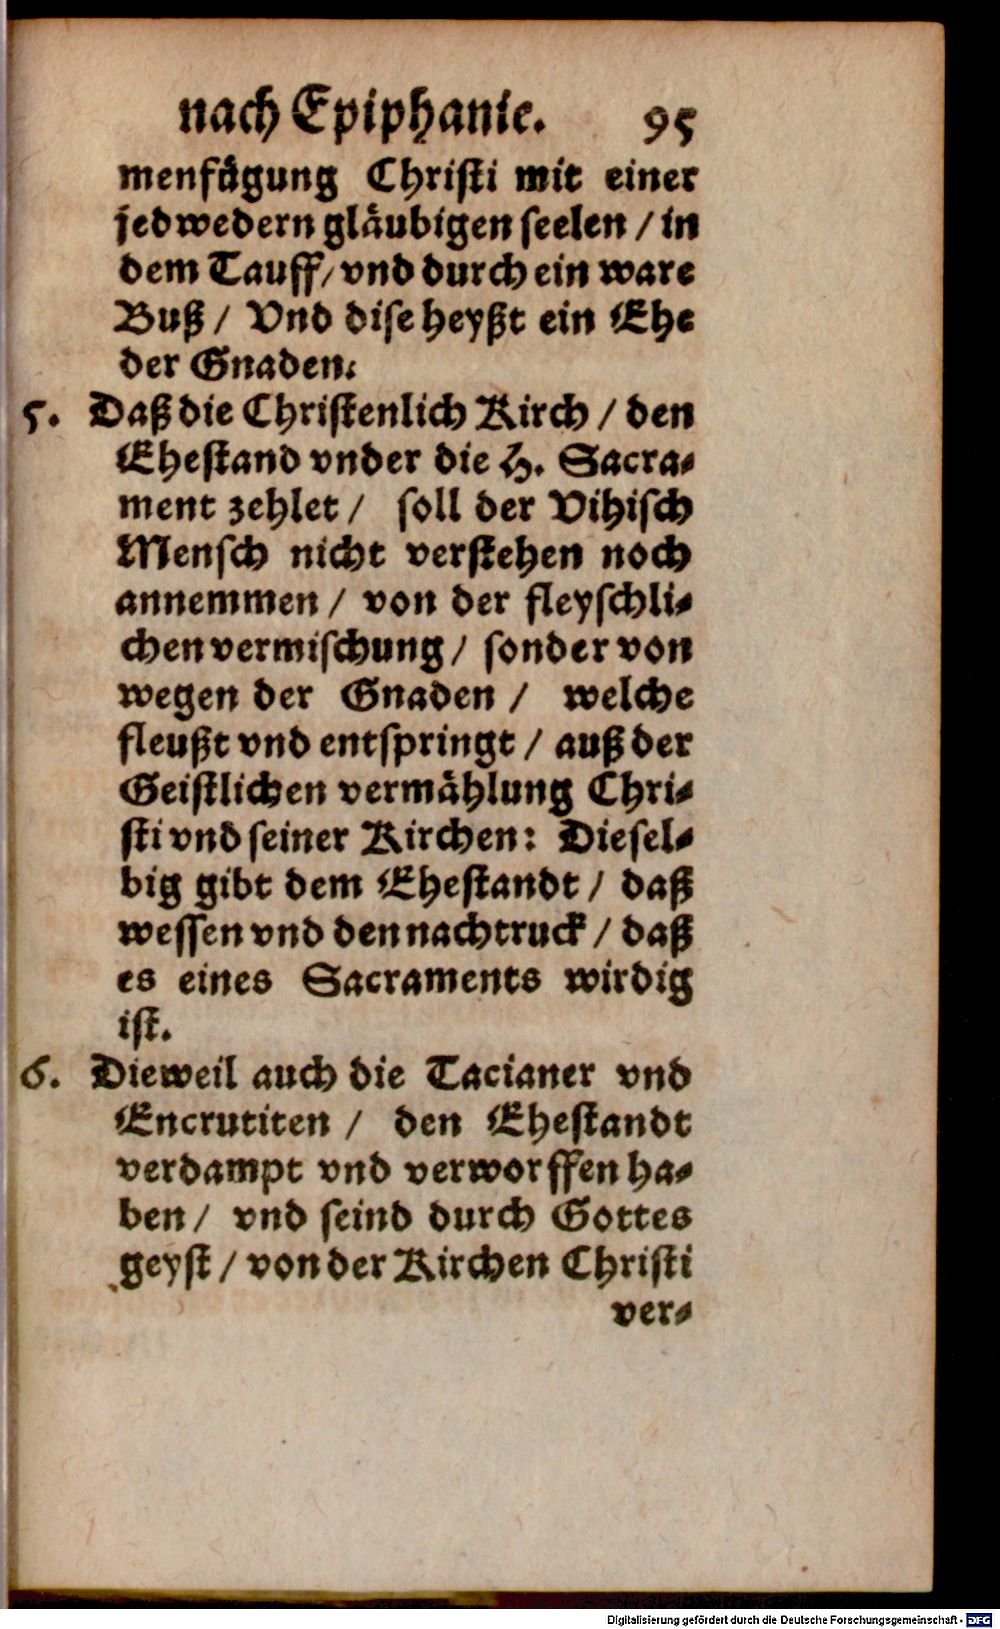 nach Epiphanie. 95
menfůgung Christi mit einer
jedwedern gläubigen seelen / in
dem Tauff / vnd durch ein ware
Buß / Vnd dise heyßt ein Ehe
der Gnaden.
5. Daß die Christenlich Kirch / den
Ehestand vnder die H. Sacra-
ment zehlet / soll der Vihisch
Mensch nicht verstehen noch
annemmen / von der fleyschli-
chen vermischung / sonder von
wegen der Gnaden / welche
fleußt vnd entspringt / auß der
Geistlichen vermählung Chri-
sti vnd seiner Kirchen: Diesel-
big gibt dem Ehestandt / daß
wessen vnd den nachtruck / daß
es eines Sacraments wirdig
ist.
6. Dieweil auch die Tacianer vnd
Encrutiten / den Ehestandt
verdampt vnd verworffen ha-
ben / vnd seind durch Gottes
geyst / von der Kirchen Christi
ver-
Digitalisierung gefördert durch die Deutsche Forschungsgemeinschaft - DFG